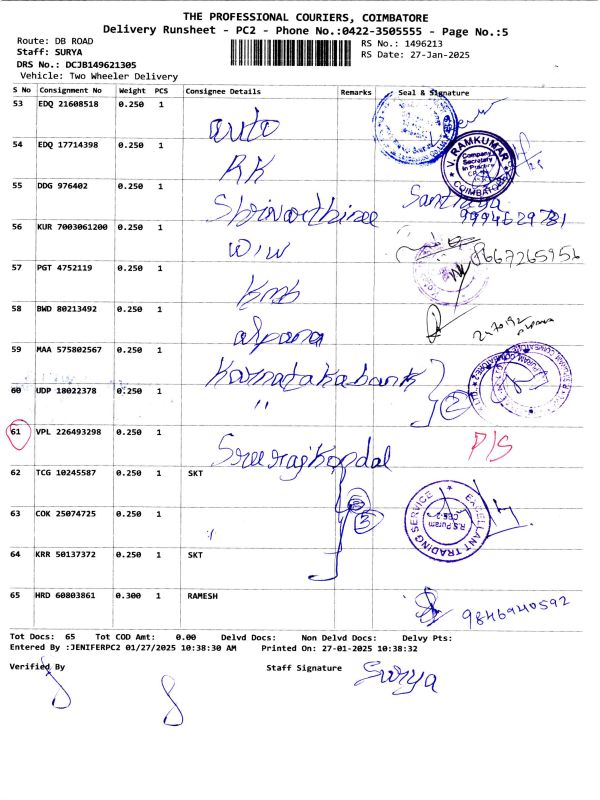 THE PROFESSIONAL COURIERS, COIMBATORE
Delivery Runsheet - PC2 - Phone No.:0422-3505555 - Page No.:5
Route: DB ROAD
RS No.: 1496213
Staff: SURYA
RS Date: 27-Jan-2025
DRS No.: DCJB149621305
Vehicle: Two Wheeler Delivery
S No Consignment No Weight PCS Consignee Details Remarks Seal & Signature
53 EDQ 21608518 0.250 1 auto
54 EDQ 17714398 0.250 1 RK
V. RAMKUMAR
Company Secretary In Practice
COIMBATORE
55 DDG 976402 0.250 1
9994629781
56 KUR 7003061200 0.250 1 W/W 8667265956
57 PGT 4752119 0.250 1 kmb
58 BWD 80213492 0.250 1 alpana
59 MAA 575802567 0.250 1 Karnatakabank
60 UDP 18022378 0.250 1 "
2
61 VPL 226493298 0.250 1 P/S
62 TCG 10245587 0.250 1 SKT
63 COK 25074725 0.250 1 "
3
EXCELLANT TRADING SERVICE
R.S.Puram
CBE-2
64 KRR 50137372 0.250 1 SKT
65 HRD 60803861 0.300 1 RAMESH 9846940592
Tot Docs: 65 Tot COD Amt: 0.00 Delvd Docs: Non Delvd Docs: Delvy Pts:
Entered By :JENIFERPC2 01/27/2025 10:38:30 AM Printed On: 27-01-2025 10:38:32
Verified By Staff Signature Surya